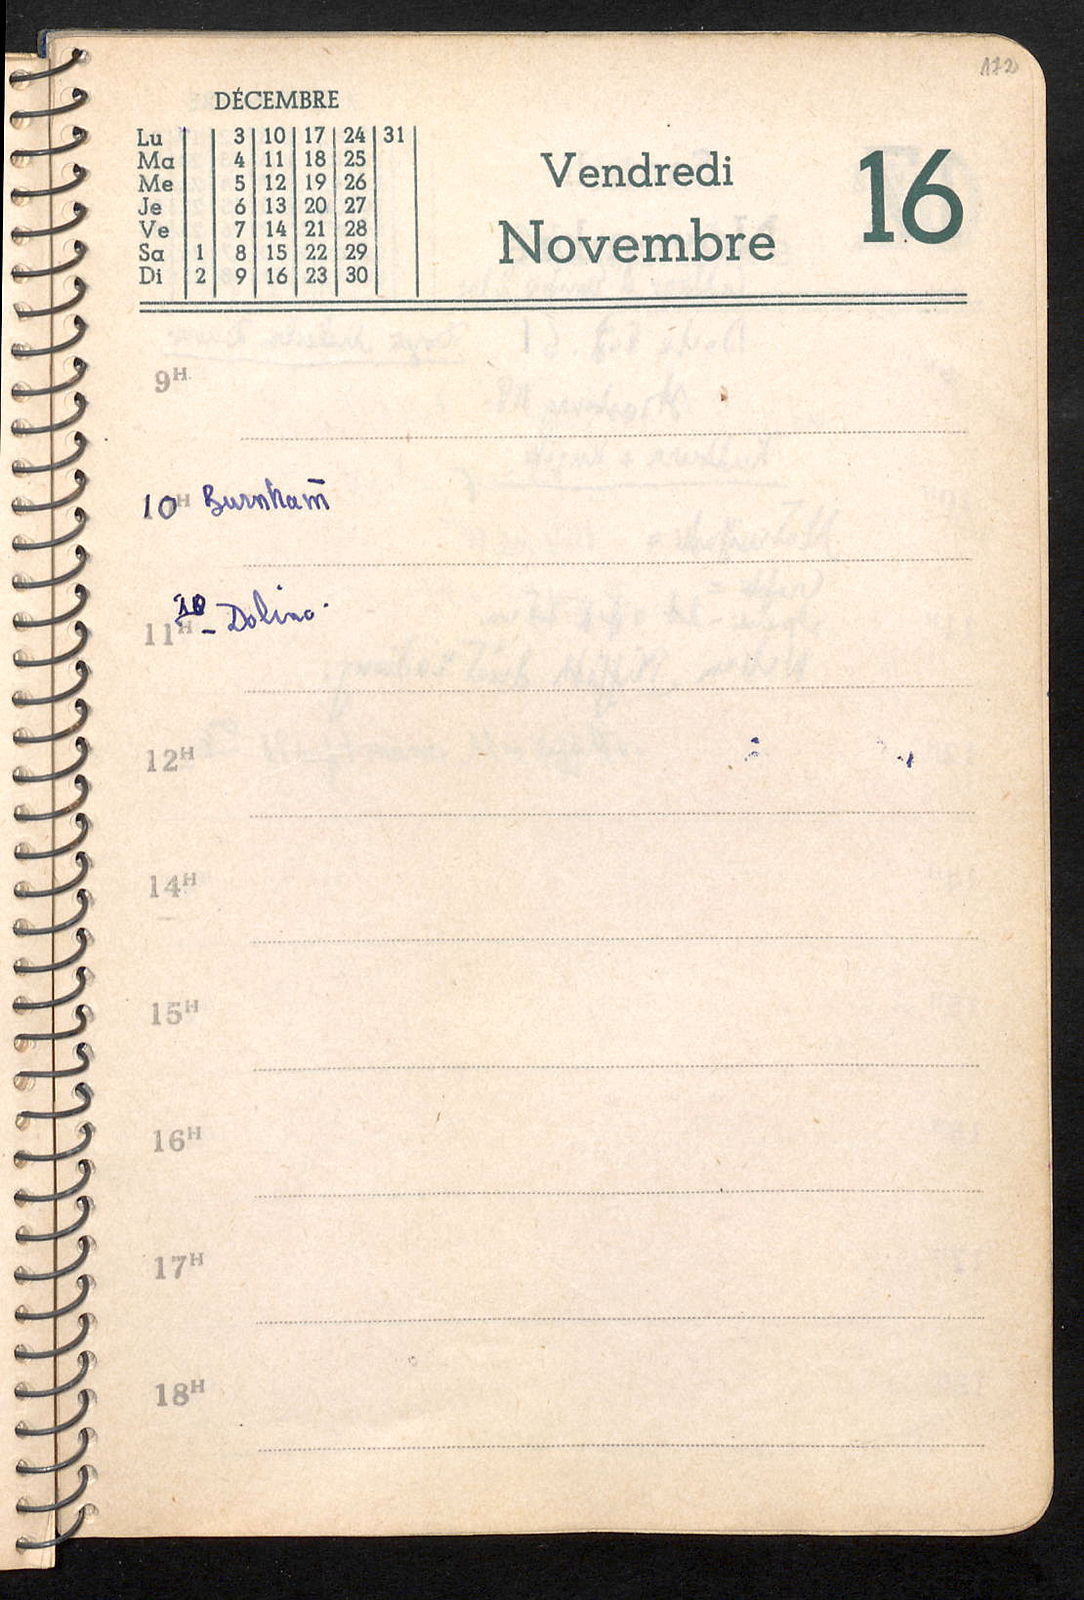 172
DÉCEMBRE
Lu 3 10 17 24 31
Ma 4 11 18 25
Me 5 12 19 26
Je 6 13 20 27
Ve 7 14 21 28
Sa 1 8 15 22 29
Di 2 9 16 23 30
Vendredi
Novembre
16
9H
10H Burnham
10 - Dolino
11H
12H
14H
15H
16H
17H
18H